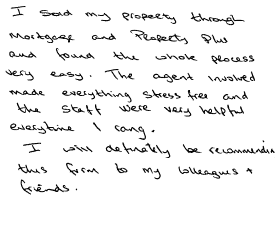 I sold my property through
Mortgage and Property Plus
and found the whole process
very easy. The agent involved
made everything stress free and
the staff were very helpful
everytime I rang.
I will definately be recommending
this firm to my colleagues +
friends.